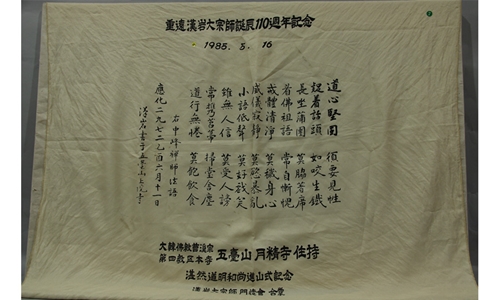 重遠漢岩大宗師誕辰110週年記念
1985. 5. 16
道心堅固 須要見性
捉着話頭 如咬生鐵
長坐蒲團 莫脇著席
看佛祖語 常自慚愧
戒體淸淨 莫穢身心
威儀寂靜 莫恣暴亂
小語低聲 莫好戱笑
雖無人信 莫受人謗
常携苕箒 掃堂舍塵
道行無倦 莫飽飮食
右中峰禪師法語
應化二九七二乙酉六月十一日
漢岩書于五臺山上院寺
大韓佛敎曹溪宗
第四敎區本寺 五臺山 月精寺 住持
道明和尙進山式記念
漢岩大宗師 門徒會 合掌